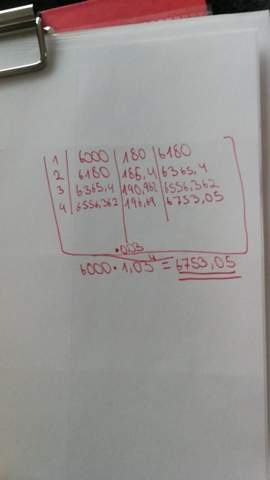 1 6000 180 6180
2 6180 185,4 6365,4
3 6365,4 190,962 6556,362
4 6556,362 196,69 6753,05
•0,03
6000 • 1,03⁴ = 6753,05